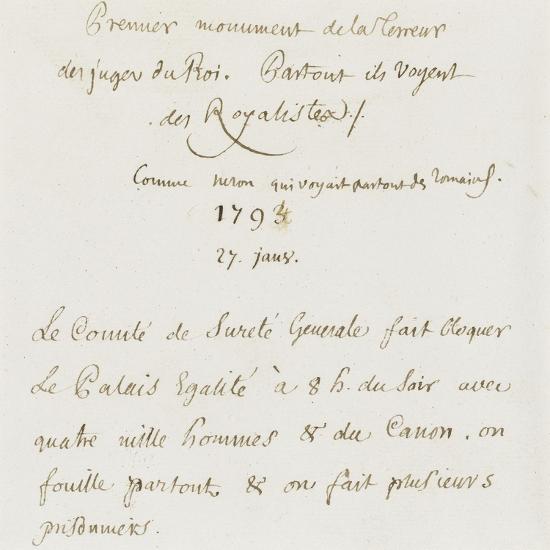 Premier monument de la Terreur
des juges du Roi. Partout ils voyent
des Royalistes
Comme neron qui voyait partout des romains.
1793
27. janv.
Le Comité de Sureté Generale fait bloquer
Le Palais Egalité à 8 h. du soir avec
quatre mille hommes & du Canon. on
fouille partout & on fait plusieurs
prisonniers.